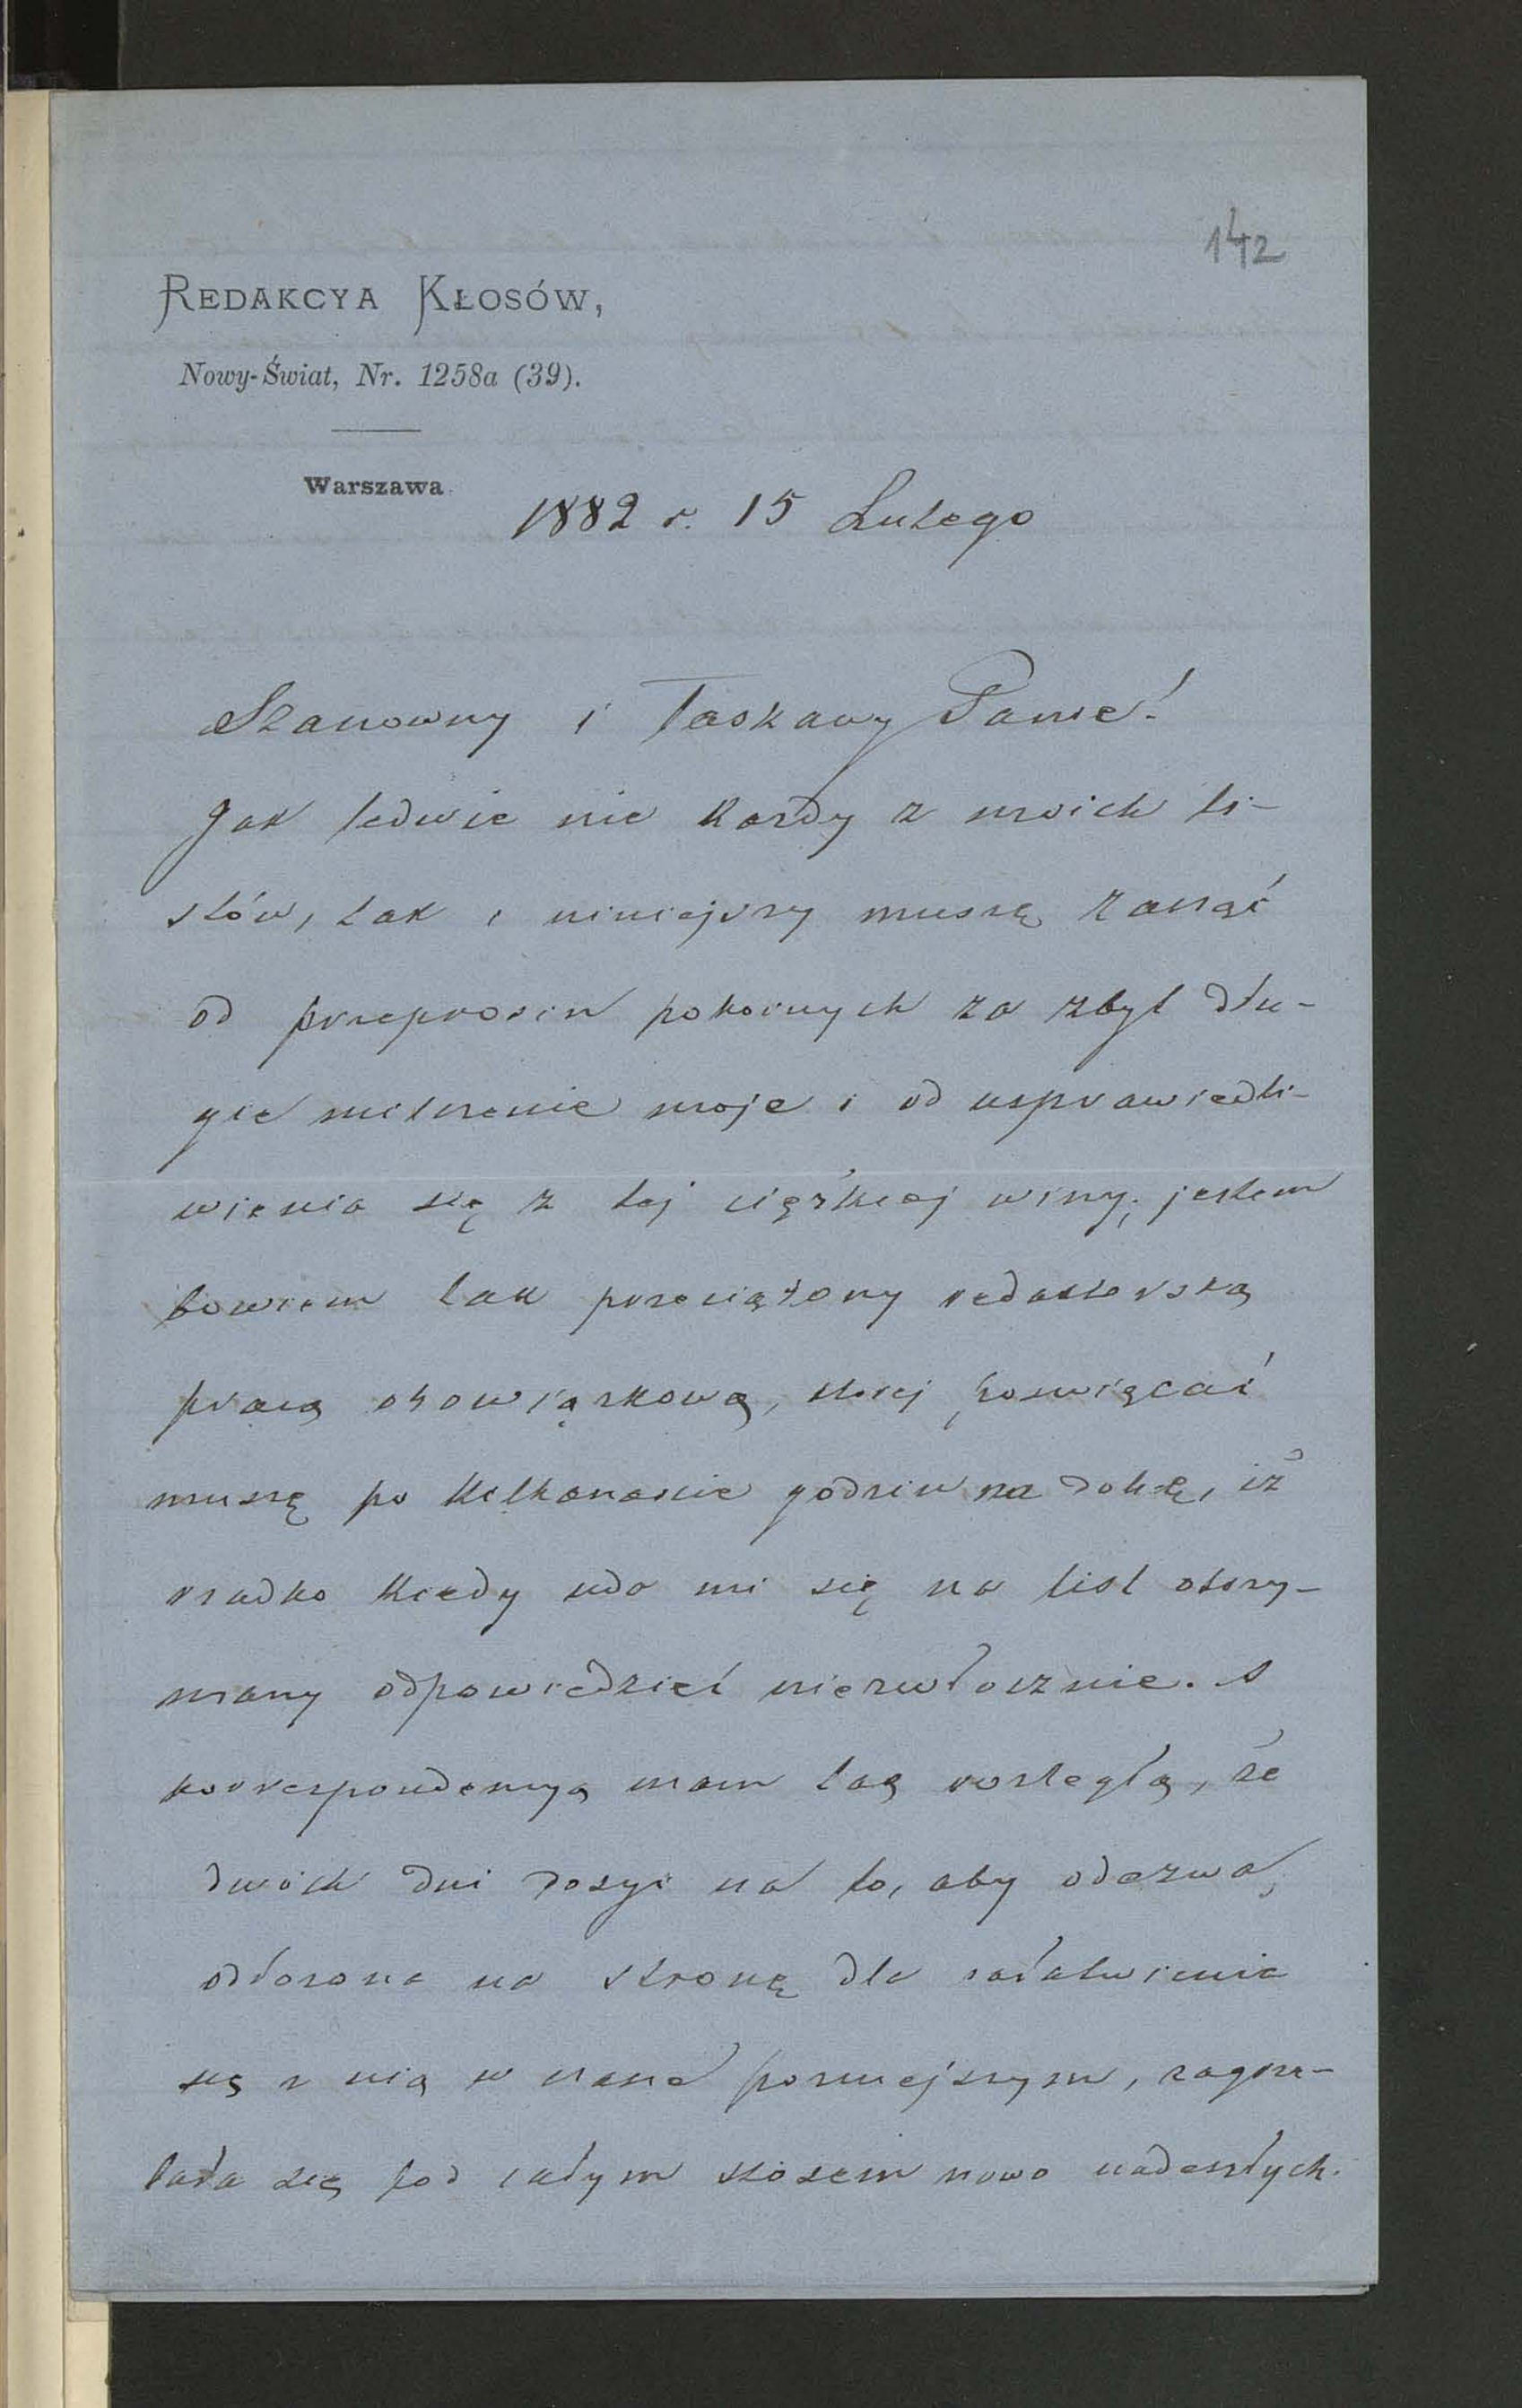 142
REDAKCYA KŁOSÓW,
Nowy-Świat, Nr. 1258a (39).
Warszawa
1882 r. 15 Lutego
Szanowny i Łaskawy Panie!
Jak ledwie nie każdy z moich li-
stów, tak i niniejszy muszę zacząć
od przeprosin pokornych za zbyt dłu-
gie milczenie moje i od usprawiedli-
wienia się z tej ciężkiej winy; jestem
bowiem tak przeciążony redaktorską
pracą obowiązkową, której poświęcać
muszę po kilkanaście godzin na dobę, iż
rzadko kiedy uda mi się na list otrzy-
many odpowiedzieć niezwłocznie. A
korrespondencyą mam tak rozległą, że
dwóch dni dosyć na to, aby odezwa,
odłożona na stronę dla załatwienia
się z nią w czasie pozniejszym, zagrze-
bała się pod całym stosem nowo nadeszłych.